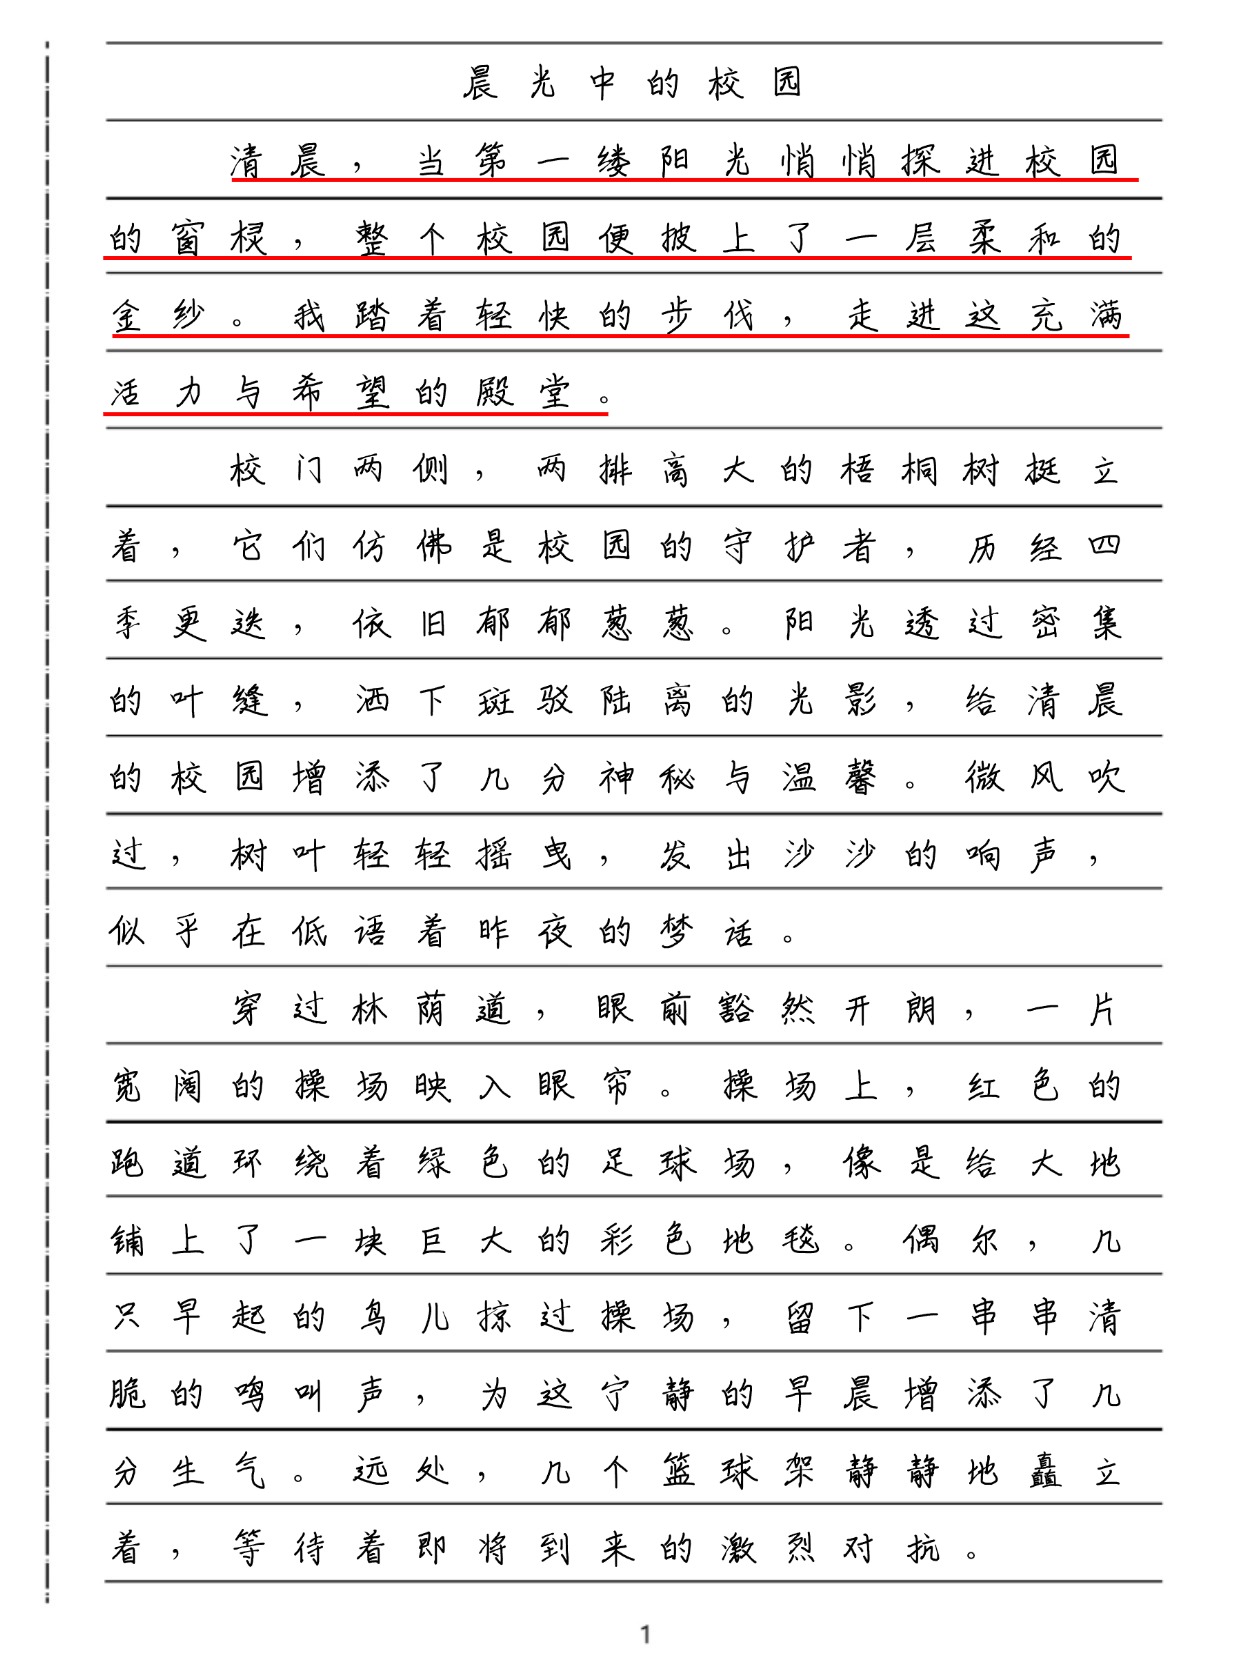 晨光中的校园
清晨，当第一缕阳光悄悄探进校园
的窗棂，整个校园便披上了一层柔和的
金纱。我踏着轻快的步伐，走进这充满
活力与希望的殿堂。
校门两侧，两排高大的梧桐树挺立
着，它们仿佛是校园的守护者，历经四
季更迭，依旧郁郁葱葱。阳光透过密集
的叶缝，洒下斑驳陆离的光影，给清晨
的校园增添了几分神秘与温馨。微风吹
过，树叶轻轻摇曳，发出沙沙的响声，
似乎在低语着昨夜的梦话。
穿过林荫道，眼前豁然开朗，一片
宽阔的操场映入眼帘。操场上，红色的
跑道环绕着绿色的足球场，像是给大地
铺上了一块巨大的彩色地毯。偶尔，几
只早起的鸟儿掠过操场，留下一串串清
脆的鸣叫声，为这宁静的早晨增添了几
分生气。远处，几个篮球架静静地矗立
着，等待着即将到来的激烈对抗。
1